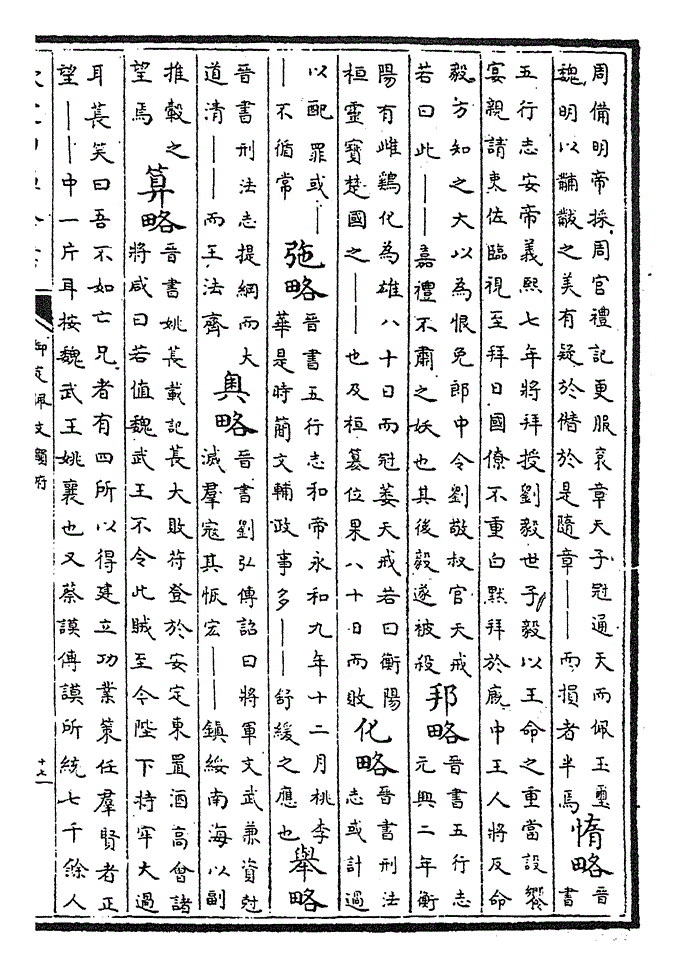 周備明帝採周官禮記更服衮章天子冠通天而佩玉璽
魏明以黼黻之美有疑於僭於是隨章——而損者半焉
惰略
晉
書
五行志安帝義熙七年將拜授劉毅世子毅以王命之重當設饗
宴親請吏佐臨視至拜日國僚不重白默拜於廐中王人將反命
毅方知之大以為恨免郎中令劉敬叔官天戒
若曰此——嘉禮不肅之妖也其後毅遂被殺
邦略
晉書五行志
元興二年衡
陽有雌鷄化為雄八十日而冠萎天戒若曰衡陽
桓靈寶楚國之——也及桓簒位果八十日而敗
化略
晉書刑法
志或計過
以配罪或—
—不循常
弛略
晉書五行志和帝永和九年十二月桃李
華是時簡文輔政事多——舒緩之應也
舉略
晉書刑法志提綱而大
道清——而王法齊
奥略
晉書劉弘傳詔曰將軍文武兼資尅
滅羣寇其恢宏——鎮綏南海以副
推轂之
望焉
算略
晉書姚萇載記萇大敗符登於安定東置酒高會諸
將咸曰若值魏武王不令此賊至今陛下将牢大過
耳萇笑曰吾不如亡兄者有四所以得建立功業策任羣賢者正
望——中一片耳按魏武王姚襄也又蔡謨傳謨所統七千餘人
御定佩文韻府